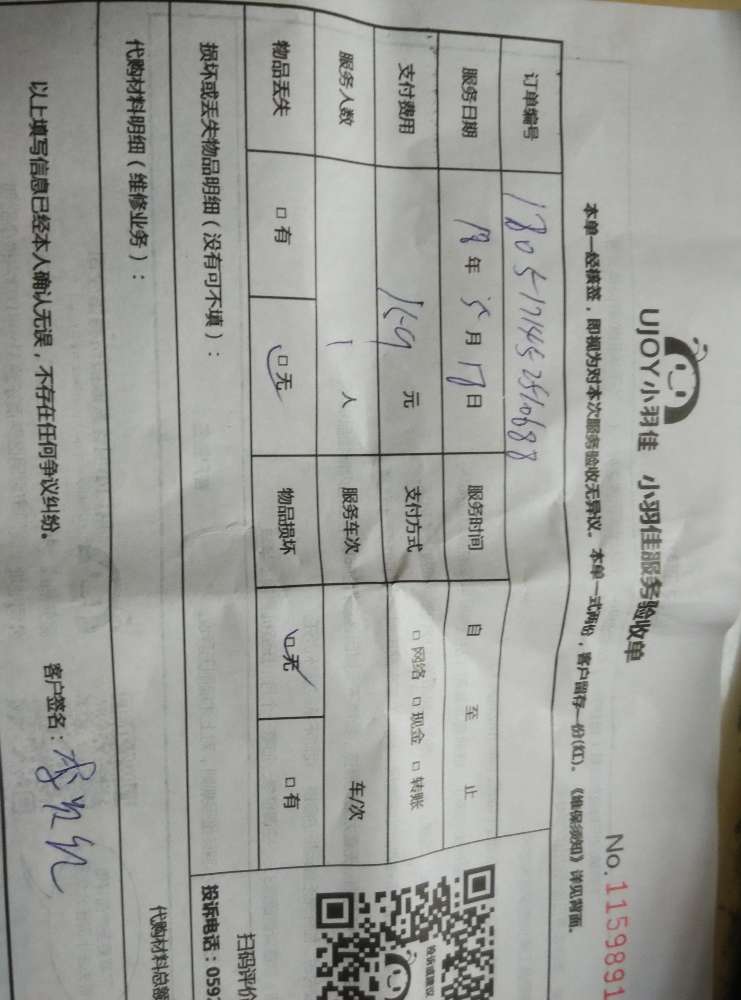 UJOY小羽佳 小羽佳服务验收单
No.1159891
本单一经核签，即视为对本次服务验收无异议。本单一式两份，客户留存一份(红)。《维保须知》详见背面。
订单编号
服务日期 18年5月17日 服务时间 自 至 止
支付费用 159元 支付方式 □网络 □现金 □转账
服务人数 1人 服务车次 车/次
物品丢失 □有 □无 物品损坏 □无 □有
损坏或丢失物品明细（没有可不填）：
扫码评价
投诉电话：059
代购材料明细（维修业务）：
代购材料总额
以上填写信息已经本人确认无误，不存在任何争议纠纷。 客户签名：